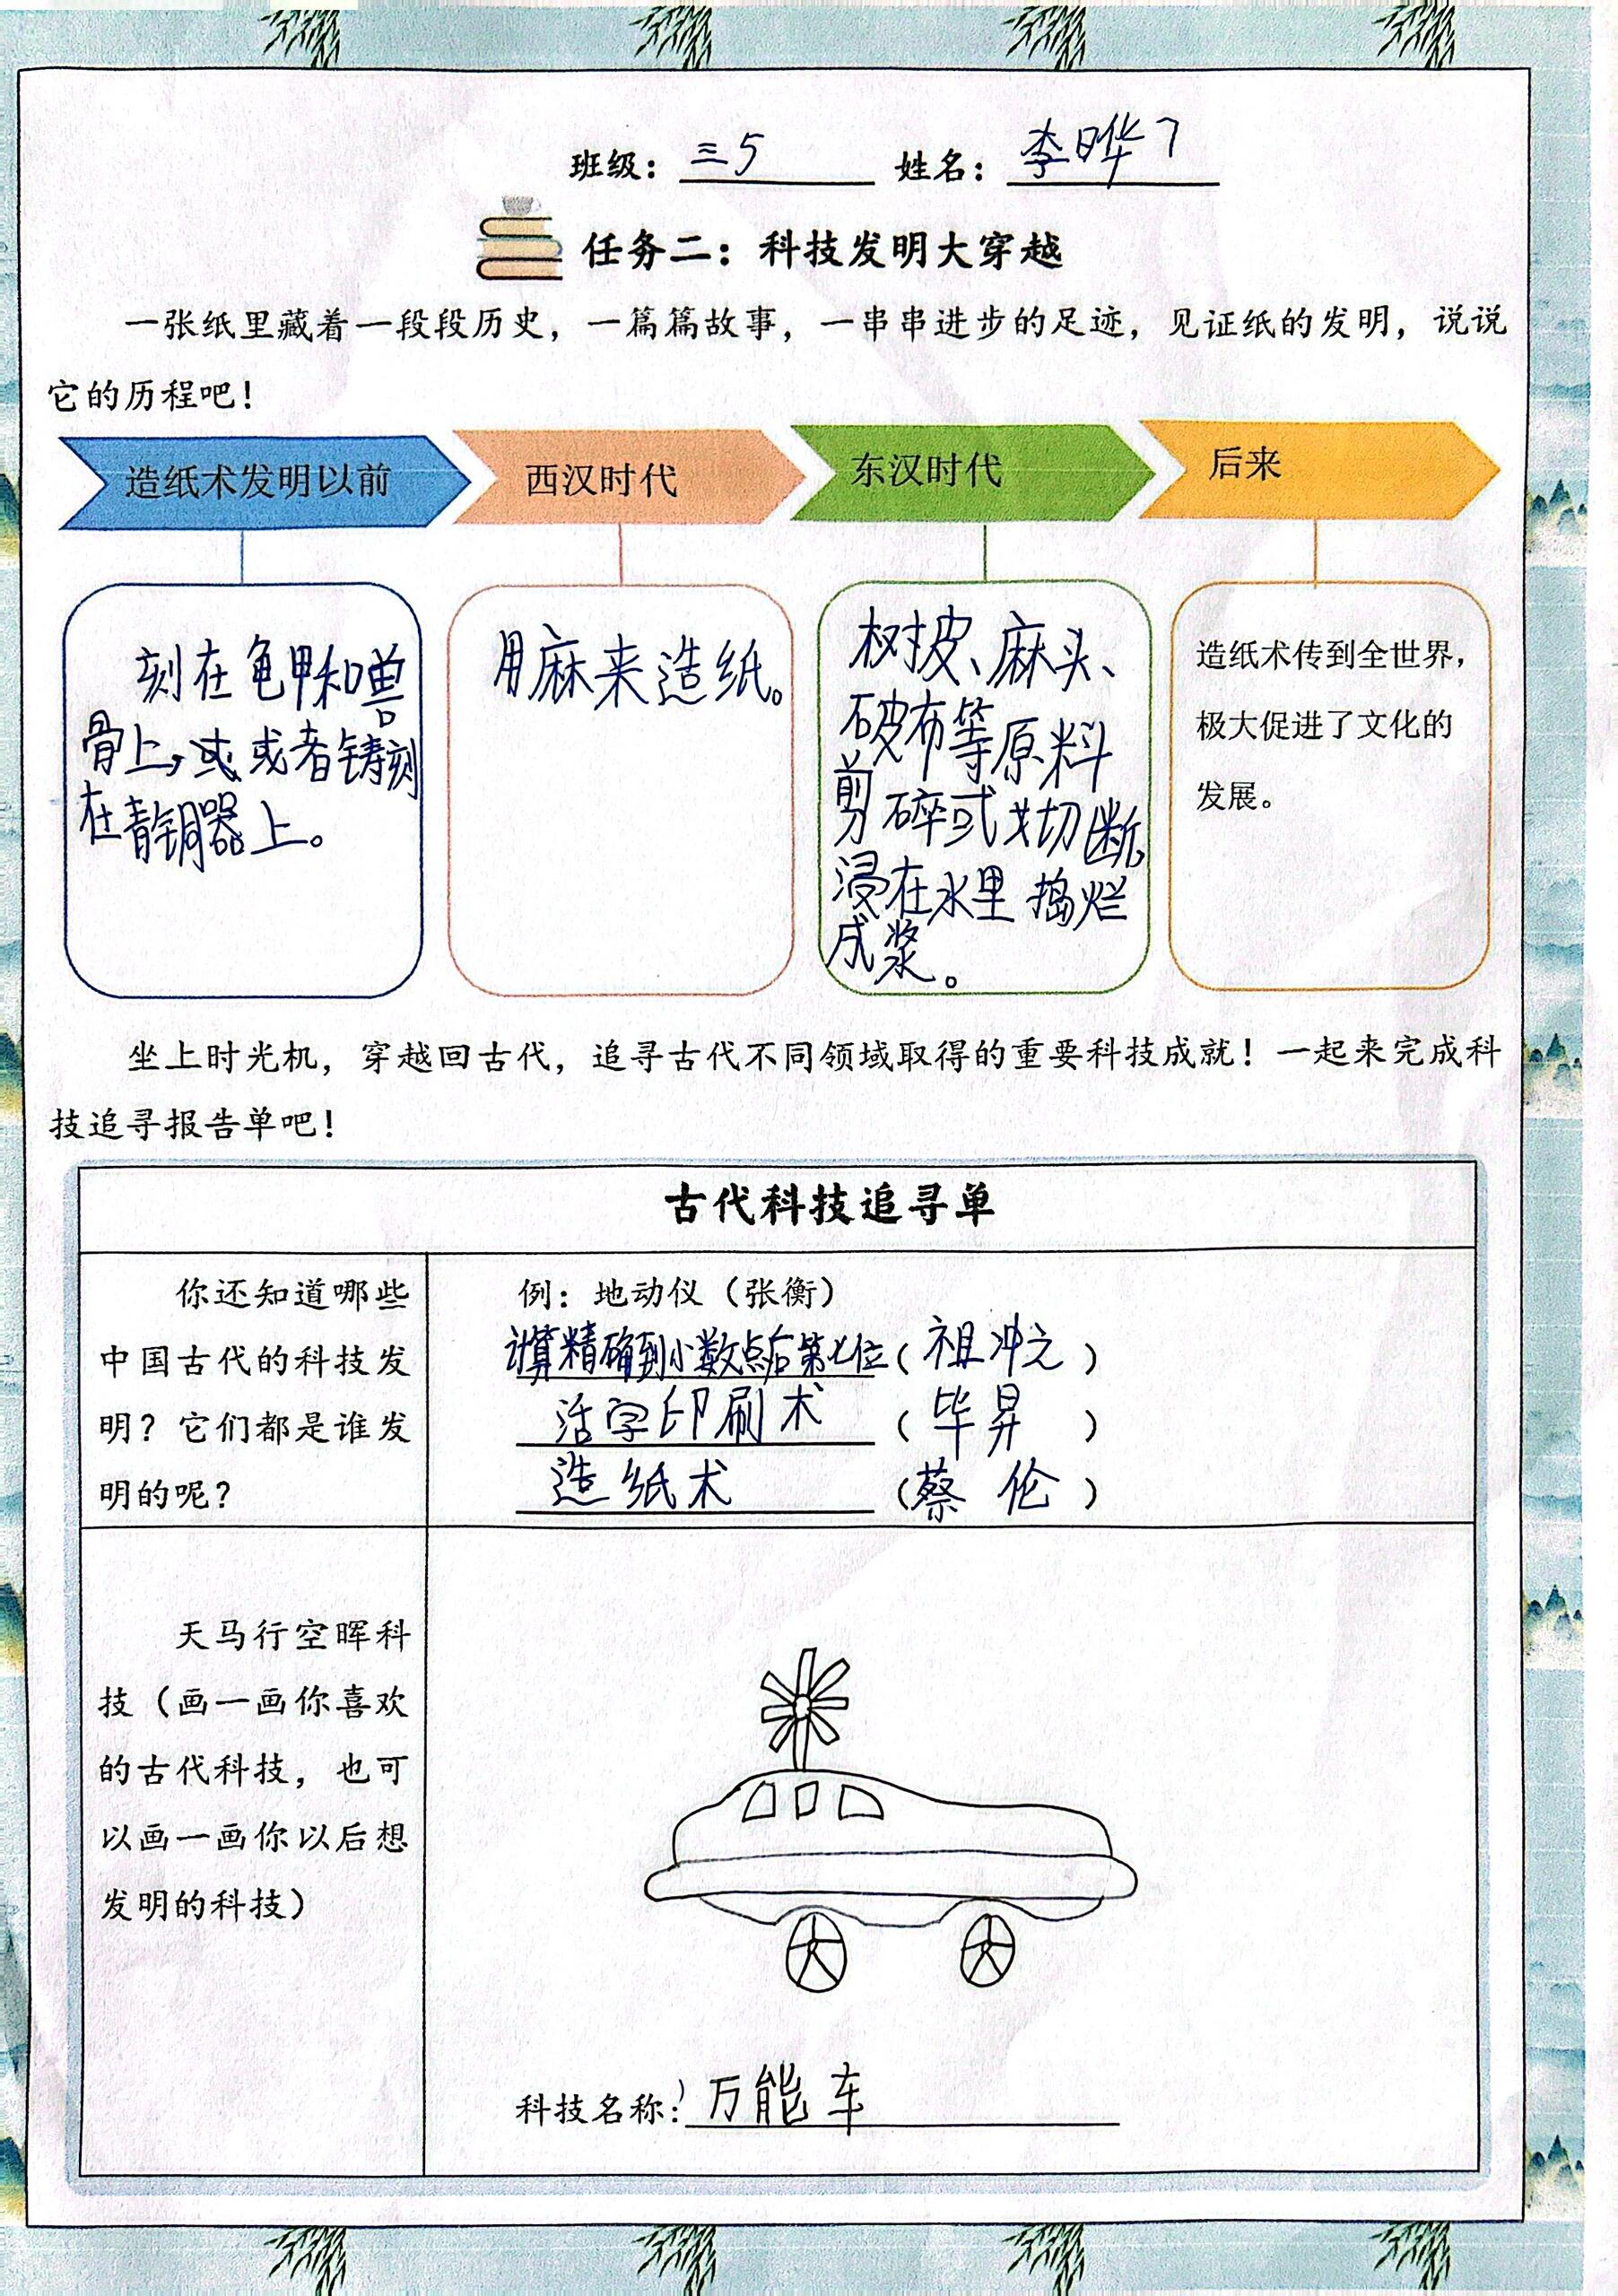 班级：三5 姓名：李晔7
任务二：科技发明大穿越
一张纸里藏着一段段历史，一篇篇故事，一串串进步的足迹，见证纸的发明，说说
它的历程吧！
造纸术发明以前
西汉时代
东汉时代
后来
刻在龟甲和兽
骨上，或者铸刻
在青铜器上。
用麻来造纸。
树皮、麻头、
破布等原料
剪碎或切断，
浸在水里捣烂
成浆。
造纸术传到全世界，
极大促进了文化的
发展。
坐上时光机，穿越回古代，追寻古代不同领域取得的重要科技成就！一起来完成科
技追寻报告单吧！
古代科技追寻单
你还知道哪些
中国古代的科技发
明？它们都是谁发
明的呢？
例：地动仪（张衡）
计算精确到小数点后第七位（祖冲之）
活字印刷术（毕昇）
造纸术（蔡伦）
天马行空晖科
技（画一画你喜欢
的古代科技，也可
以画一画你以后想
发明的科技）
科技名称：万能车